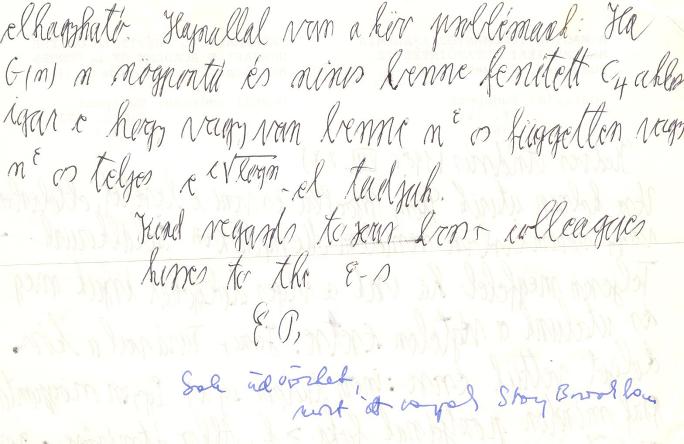 elhagyható. Hajnallal van a köv problémánk: Ha
G(n) n szögpontú és nincs benne feszített C₄ akkor
igaz e hogy vagy van benne n^ε os független vagy
n^ε os teljes e^{c√log n}-el tudjuk.
Kind regards to your boss + colleagues
kisses to the ε-s
E. P.
Sok üdvözlet,
most itt vagyok Stony Brookban